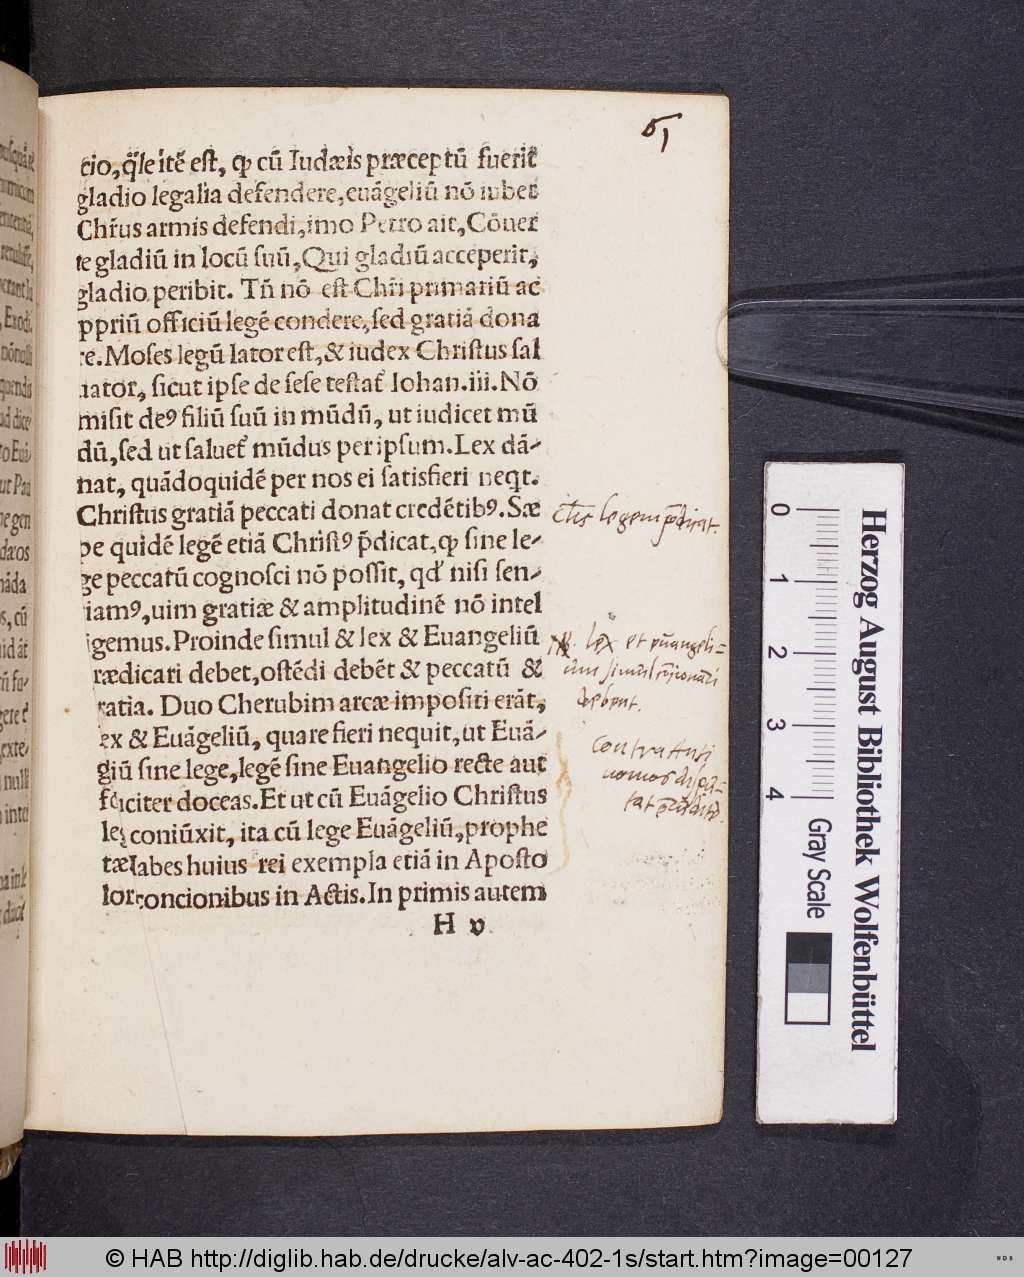 61
cio, q̃le itẽ est, ꝙ cũ Iudæis præceptũ fuerit
gladio legalia defendere, euãgeliũ nõ iubet
Chr̃us armis defendi, imo Petro ait, Cõuer
te gladiũ in locũ suũ, Qui gladiũ acceperit,
gladio peribit. Tñ nõ est Chr̃i primariũ ac
ppriũ officiũ legẽ condere, sed gratiã dona
re. Moses legũ lator est, & iudex Christus sal
uator, sicut ipse de sese testat̃ Iohan. iii. Nõ
misit deꝰ filiũ suũ in mũdũ, ut iudicet mũ
dũ, sed ut saluet̃ mũdus per ipsum. Lex dã-
nat, quãdoquidẽ per nos ei satisfieri neqt.
Christus gratiã peccati donat credẽtibꝰ. Sæ
pe quidẽ legẽ etiã Christꝰ p̃dicat, ꝙ sine le-
ge peccatũ cognosci nõ possit, qđ nisi sen-
iamꝰ, uim gratiæ & amplitudinẽ nõ intel
igemus. Proinde simul & lex & Euangeliũ
rædicari debet, ostẽdi debẽt & peccatũ &
ratia. Duo Cherubim arcæ impositi erãt,
ex & Euãgeliũ, quare fieri nequit, ut Euã-
giũ sine lege, legẽ sine Euangelio recte aut
fœciter doceas. Et ut cũ Euãgelio Christus
leg coniũxit, ita cũ lege Euãgeliũ, prophe
tæ labes huius rei exempla etiã in Aposto
lor concionibus in Actis. In primis autem
H v
Chr̃s legem p̃dicat.
lex et euangeli=
um simul
debent.
Contra Anti
nomos
Herzog August Bibliothek Wolfenbüttel
0 1 2 3 4 Gray Scale
© HAB http://diglib.hab.de/drucke/alv-ac-402-1s/start.htm?image=00127